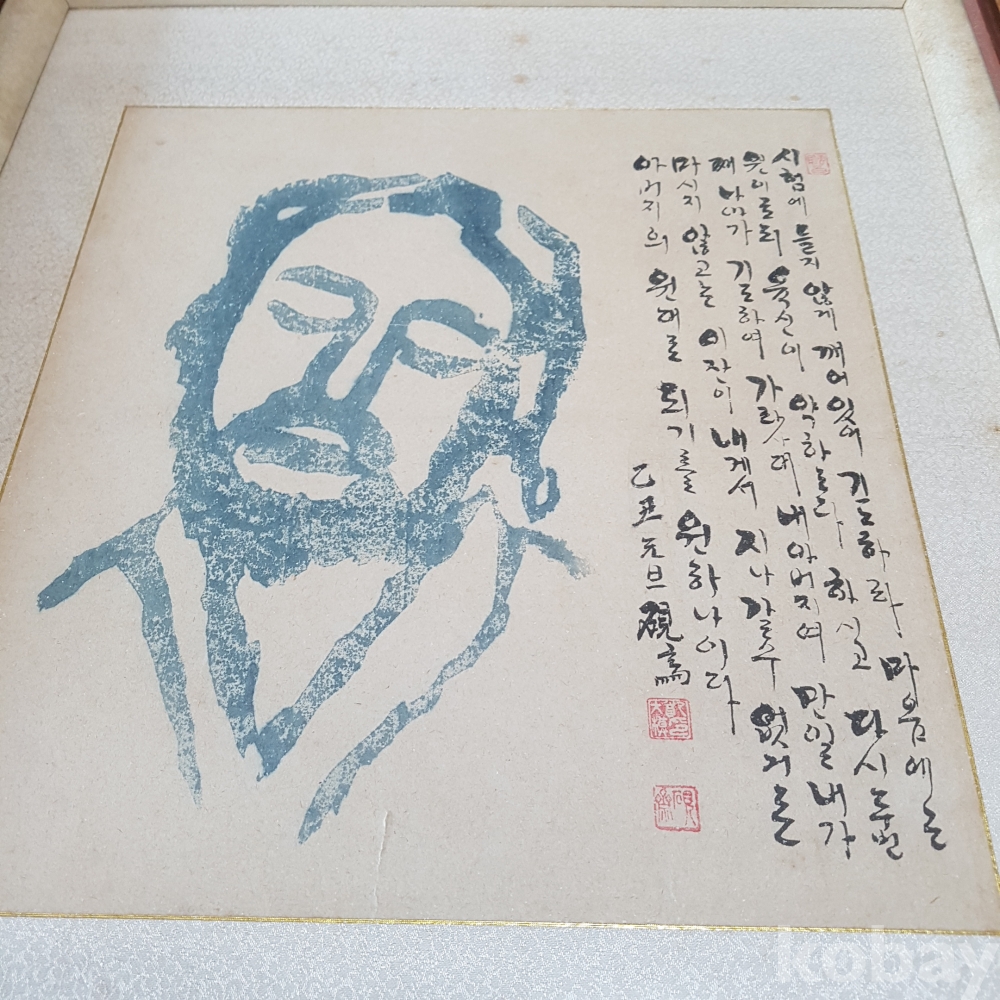 시험에 들지 않게 깨어있어 기도하라 마음에는
원이로되 육신이 약하도다 하시고 다시 두번
째 나아가 기도하여 가라사대 내아버지여 만일 내가
마시지 않고는 이잔이 내게서 지나갈수 없거든
아버지의 원대로 되기를 원하나이다
乙丑元旦 硯齋
kobay